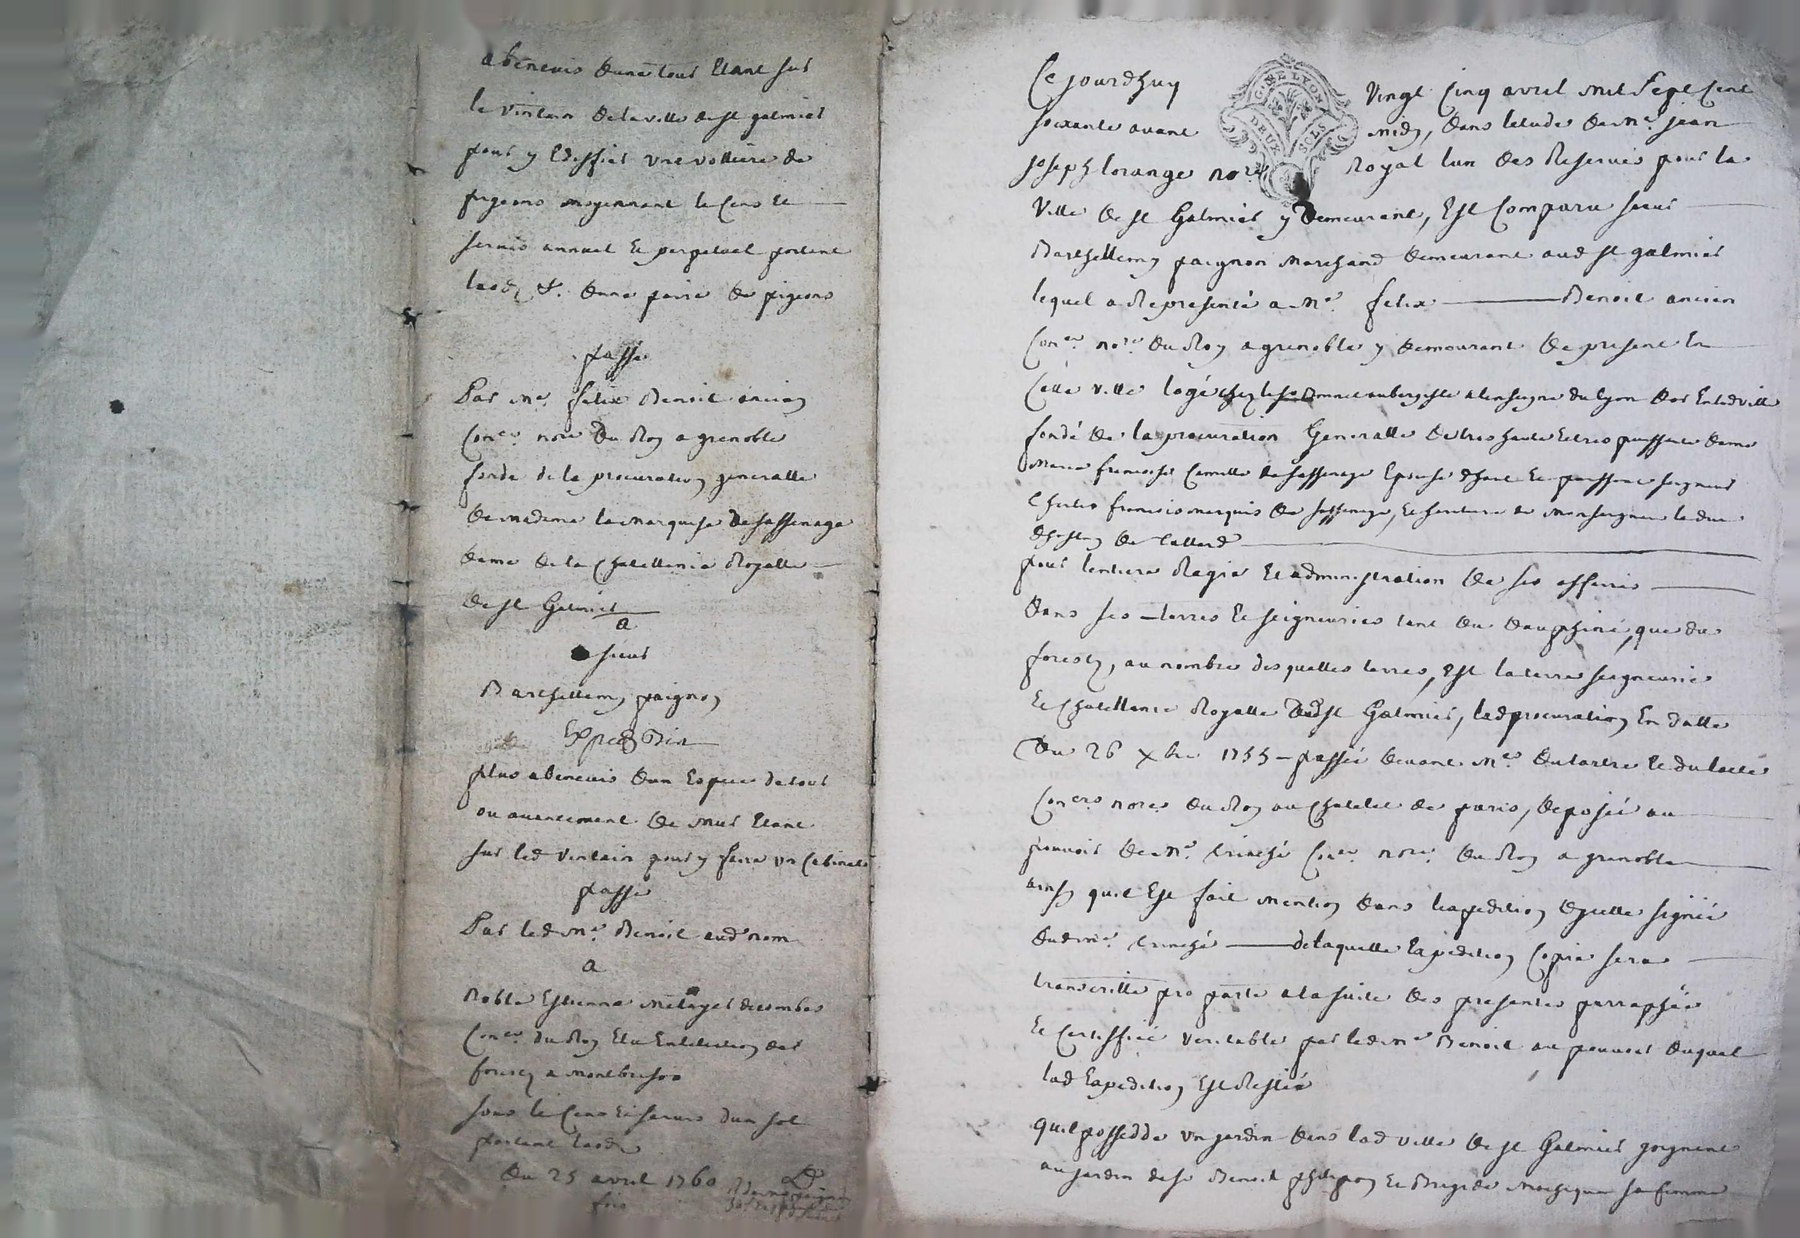 abenevis dune tour Etant sur
le vintain de la ville de st galmier
pour y Ediffier une volliere de
pigeons moyennant le Cens Et
servis annuel Et perpetuel portant
laods &. dune paire de pigeons
passé
Par Me. felix Benoit ancien
Coner. nore Du Roy a grenoble
fondé de la procuration generalle
de madame la marquise de sassenage
dame de la Chatellenie Royalle
de st Galmier
a
sieur
Barthellemy paignon
Exped
plus abenevis dun Espace de tour
ou avancement de mur Etant
sur led vintain pour y faire un Cabinet
passé
Par led Me. Benoit aud nom
a
Noble Estienne
Coner du Roy En Lelection de
forest a montbrison
sous le Cens Et servis dun sol
portant laods
du 25 avril 1760
Ce jourdhuy vingt Cinq avril mil sept Cent
GNE LYON
DEUX SOLS
soixante avant midy, dans letude de Me. jean
joseph lorange nore Royal lun des Reservés pour la
ville de st Galmier y demeurant, Est Comparu sieur
Barthellemy paignon marchand demeurant aud st galmier
lequel a Representé a Me. felix Benoit ancien
Coner. nore. du Roy a grenoble y demeurant de present En
Cette ville logé chez le sr aubergiste a lenseigne du lyon dor En lad ville
fondé de la procuration Generalle de tres haute Et tres puissante dame
Marie francoise Camille de sassenage Epouse dhaut Et puissant seigneur
Charles francois marquis de sassenage, Et heritiere de Monseigneur le duc
dhostun de tallard
pour lentiere Regie Et administration de ses affaires
dans ses terres Et seigneuries tant du dauphiné, que du
forest, au nombre desquelles terres, Est la terre seigneurie
Et Chatellenie Royalle dud st Galmier, lad procuration En datte
Du 26 xbre 1755 passée devant Me. dutartre Et
Coners nores du Roy au Chatelet de paris, deposée au
pouvoir de Me. Coner. nore. du Roy a grenoble
ainsy quil Est fait mention dans lexpedition dycelle signée
dud me. de laquelle Expedition Copie sera
transcritte pro parte a la suite des presentes parraphée
Et Certiffiée veritable par led me Benoit au pouvoir duquel
lad Expedition Est Restée
quil possedde un jardin dans lad ville de st Galmier joignant
au jardin de sr Benoit philipon Et sa femme